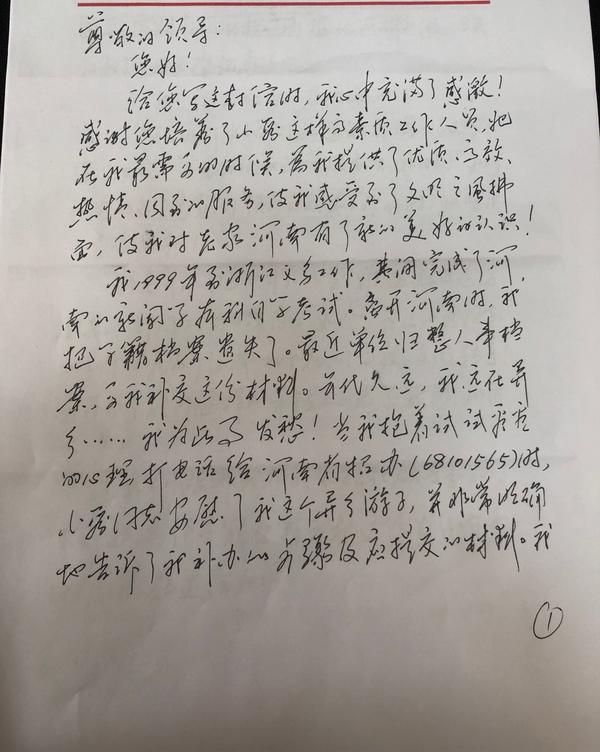 尊敬的领导：
您好！
给您写这封信时，我心中充满了感激！
感谢您培养了小张这样高素质工作人员，她
在我最需要的时候，为我提供了优质、高效、
热情、周到的服务，使我感受到了文明之风拂
面，使我对老家河南有了新的美好的认识！
我1999年到浙江义乌工作，其间完成了河
南的新闻学本科自学考试。离开河南时，我
把学籍档案遗失了。最近单位归整人事档
案，要我补交这份材料。年代久远，我远在异
乡……我为此事发愁！当我抱着试试看
的心理打电话给河南省招办(68101565)时，
同志安慰了我这个异乡游子，并非常明确
地告诉了我补办的步骤及应提交的材料。我
①